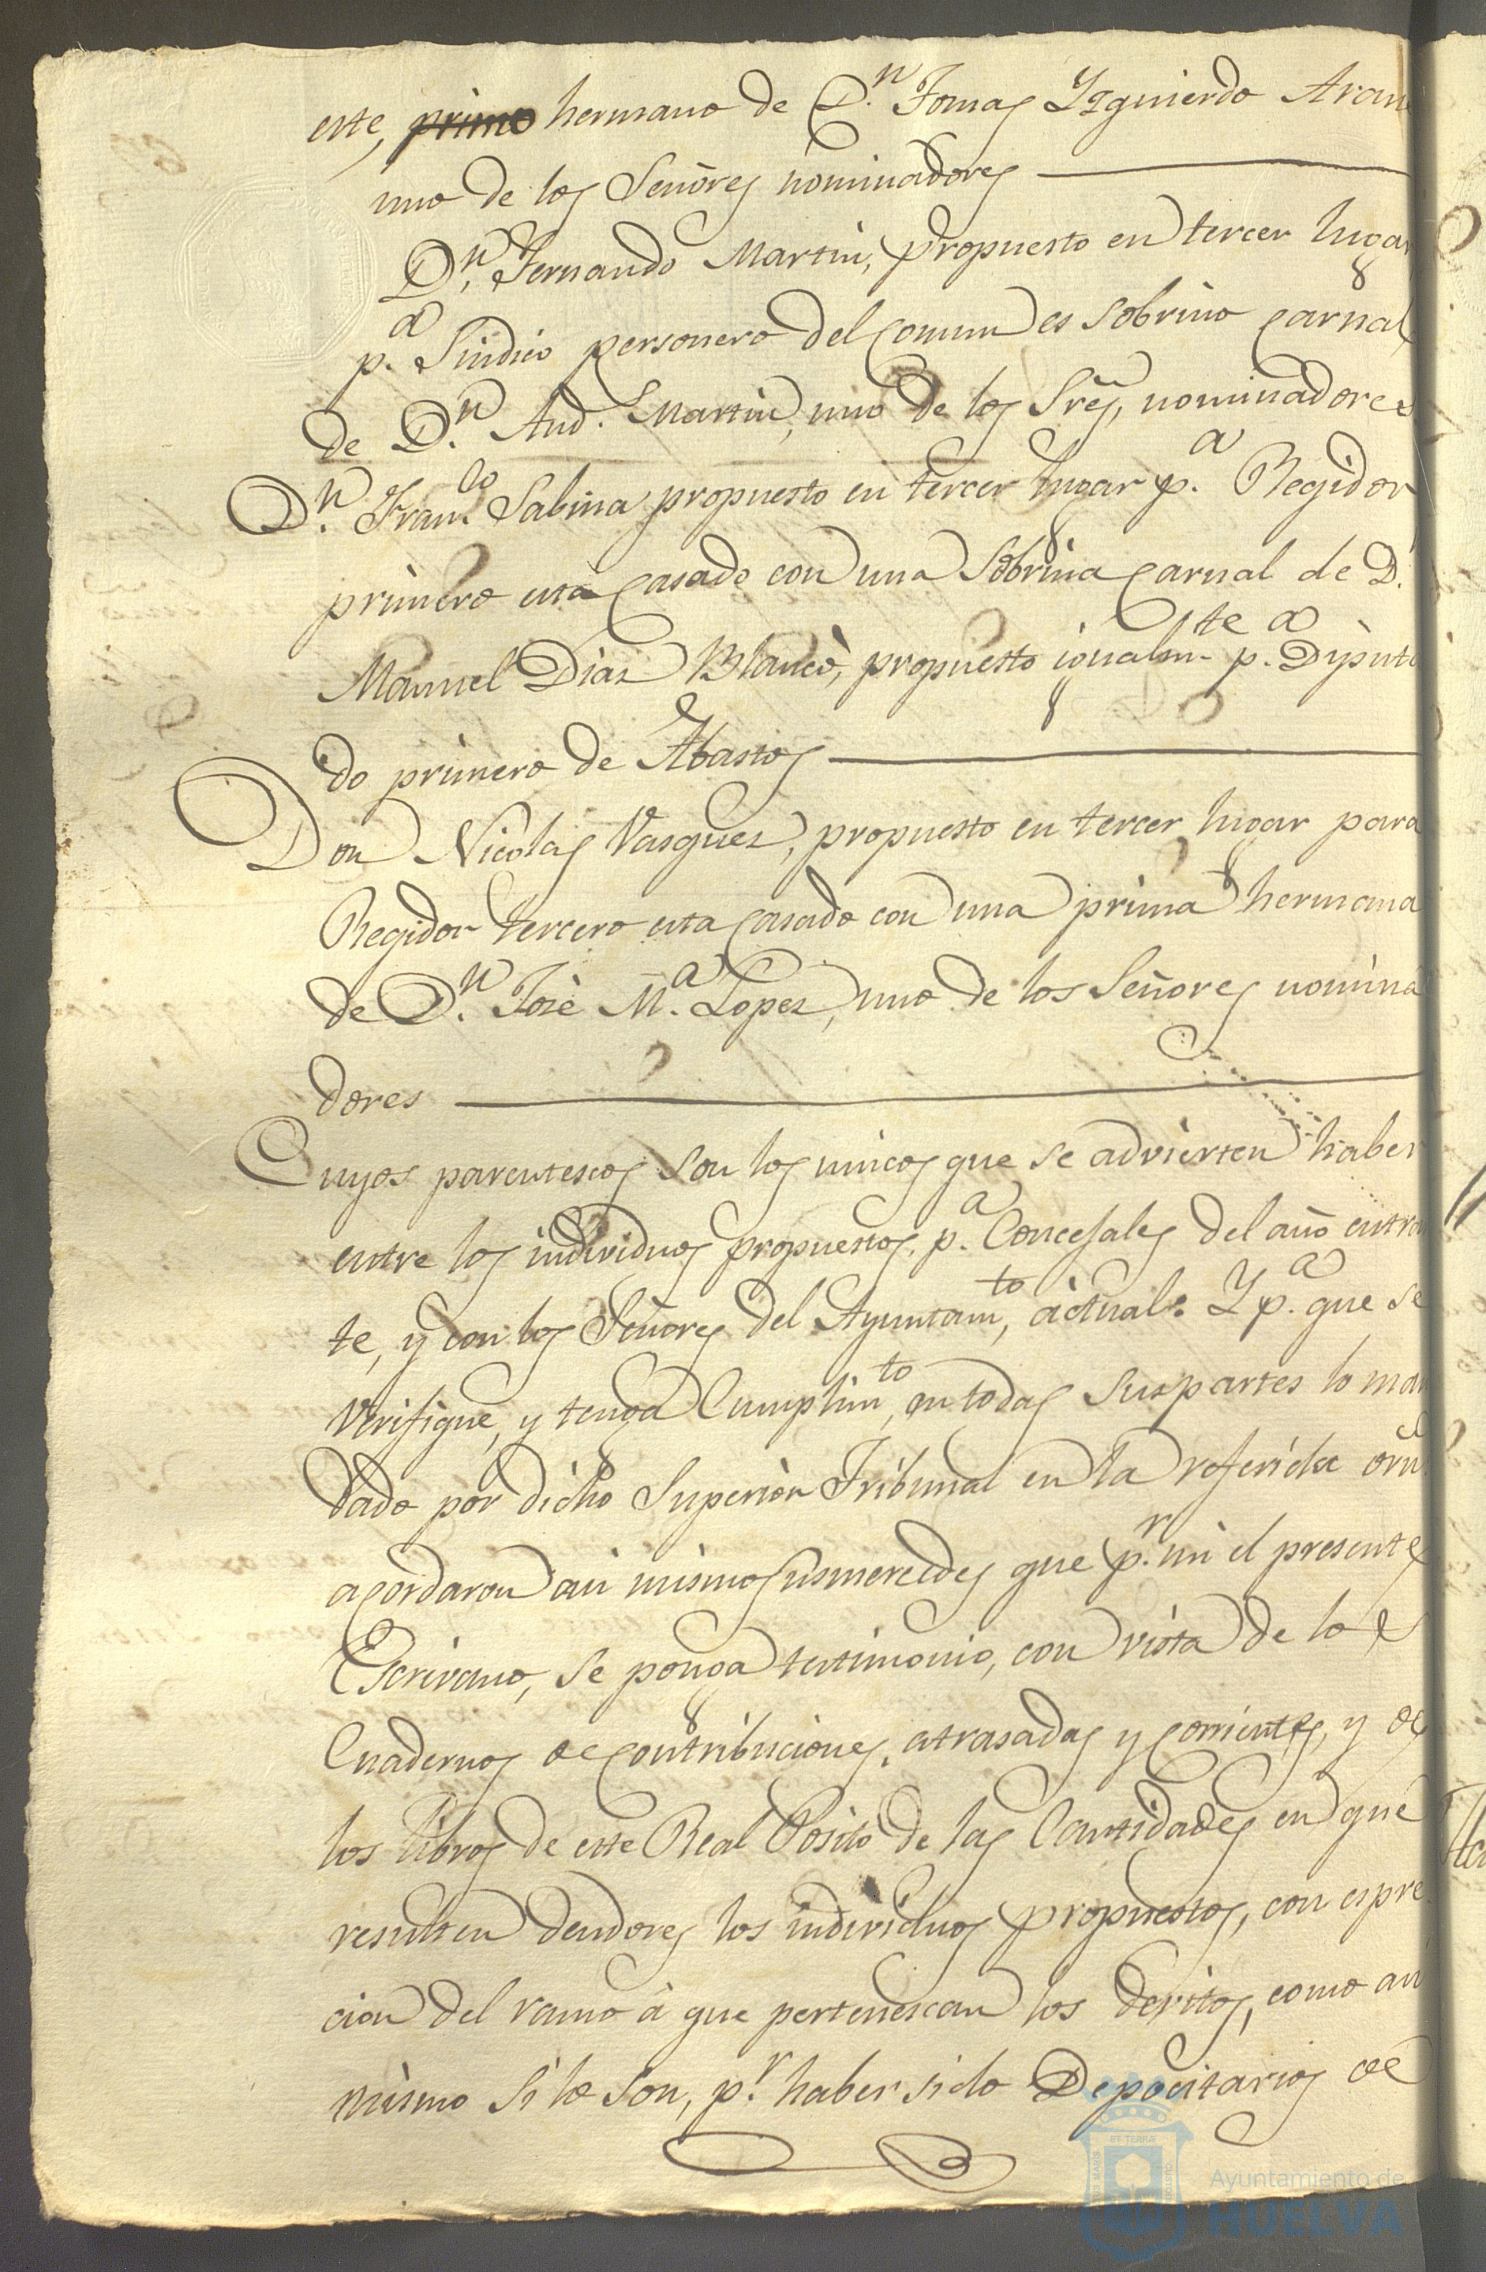 este, primo hermano de D.n Tomas Yzquierdo Aran
uno de los Señores nominadores
D.n Fernando Martin, propuesto en tercer lugar
p.a Sindico personero del Comun es sobrino carnal
de D.n And.s Martin, uno de los Sres, nominadores
D.n Fran.co Sabina propuesto en tercer lugar p.a Regidor
primero esta Casado con una Sobrina Carnal de D.
Manuel Diaz Blanco, propuesto igualm.te p.a Diputa
do primero de Abastos
Don Nicolas Vasquez, propuesto en tercer lugar para
Regidor tercero esta Casado con una prima hermana
de D.n José M.a Lopez, uno de los Señores nomina
dores
Cuyos parentescos son los unicos que se advierten haber
entre los individuos propuestos, p.a Concejales del año entra
te, y con los Señores del Ayuntam.to actual. Y p.a que se
verifique, y tenga Cumplim.to en todas sus partes lo man
dado por dicho Superior Tribunal en la referida orn
acordaron asi mismo susmercedes que p.r mi el presente
Escrivano, se ponga testimonio, con vista de los
Cuadernos de contribuciones, atrasadas y corrientes, y de
los libros de este Real Posito de las Cantidades en que
resulten deudores los individuos propuestos, con espre
cion del ramo á que pertenescan los devitos, como asi
mismo si lo son, p.r haber sido Depocitarios de
ET TERRÆ
Ayuntamiento de
HUELVA